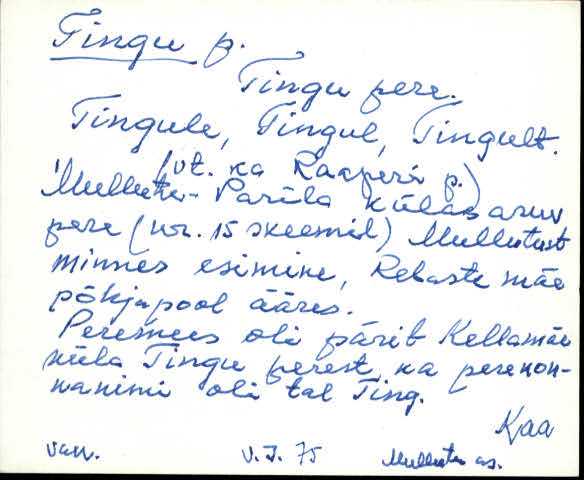 Tingu p.
Tingu pere.
Tingule, Tingul, Tingult.
(vt. ka Raaperi p.)
Mullutu-Parila külas asuv
pere (nr. 15 skeemil) Mullutust
minnes esimene, Rebaste mäe
põhjapool ääres.
Peremees oli pärit Kellamäe
küla Tingu perest, ka perekon-
nanimi oli tal Ting.
Kaa
V. I. 75
Mullutu as.